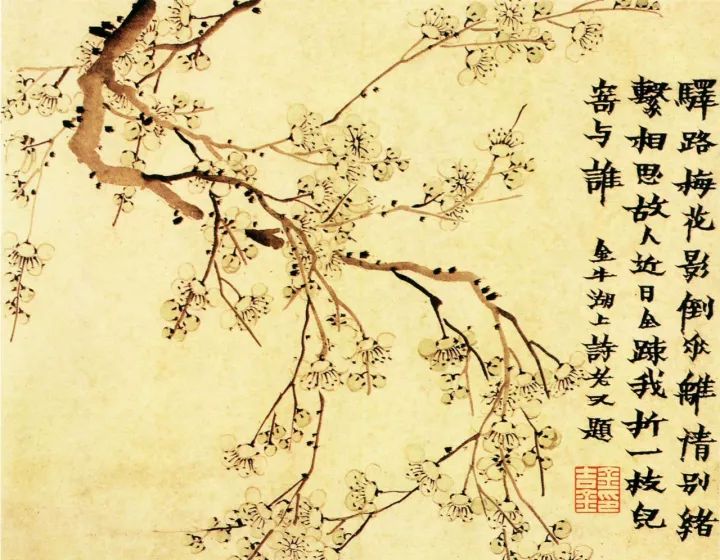 驛路梅花影倒垂離情別緒
繫相思故人近日全疎我折一枝兒
寄与誰
金牛湖上詩老又題
金印吉金